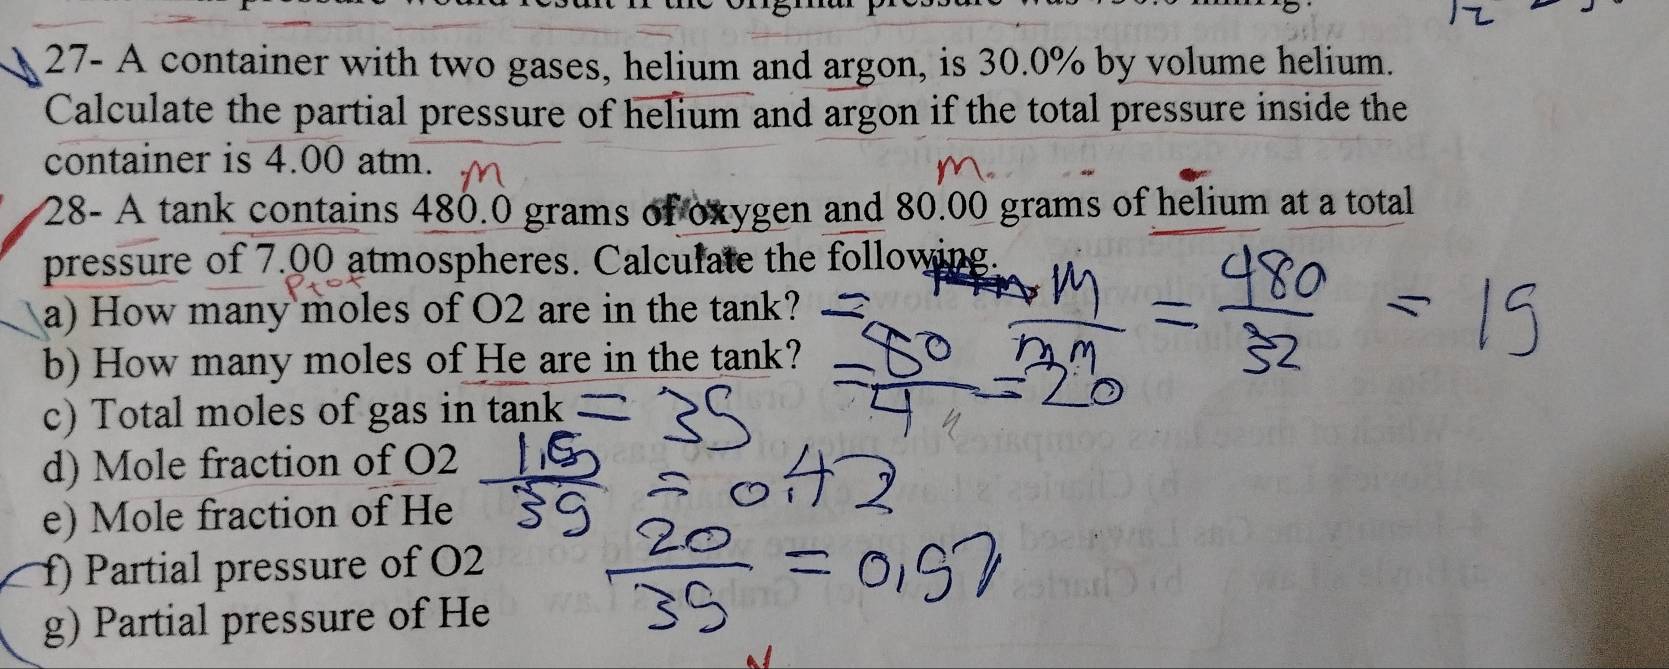 27- A container with two gases, helium and argon, is 30.0% by volume helium.
Calculate the partial pressure of helium and argon if the total pressure inside the
container is 4.00 atm.
m m.
28- A tank contains 480.0 grams of oxygen and 80.00 grams of helium at a total
pressure of 7.00 atmospheres. Calculate the following.
Ptot
a) How many moles of O2 are in the tank? = m/mm = 480/32 = 15
b) How many moles of He are in the tank? = 80/4 = 20
c) Total moles of gas in tank = 35
d) Mole fraction of O2 15/35 = 0.42
e) Mole fraction of He 20/35 = 0,57
f) Partial pressure of O2
g) Partial pressure of He